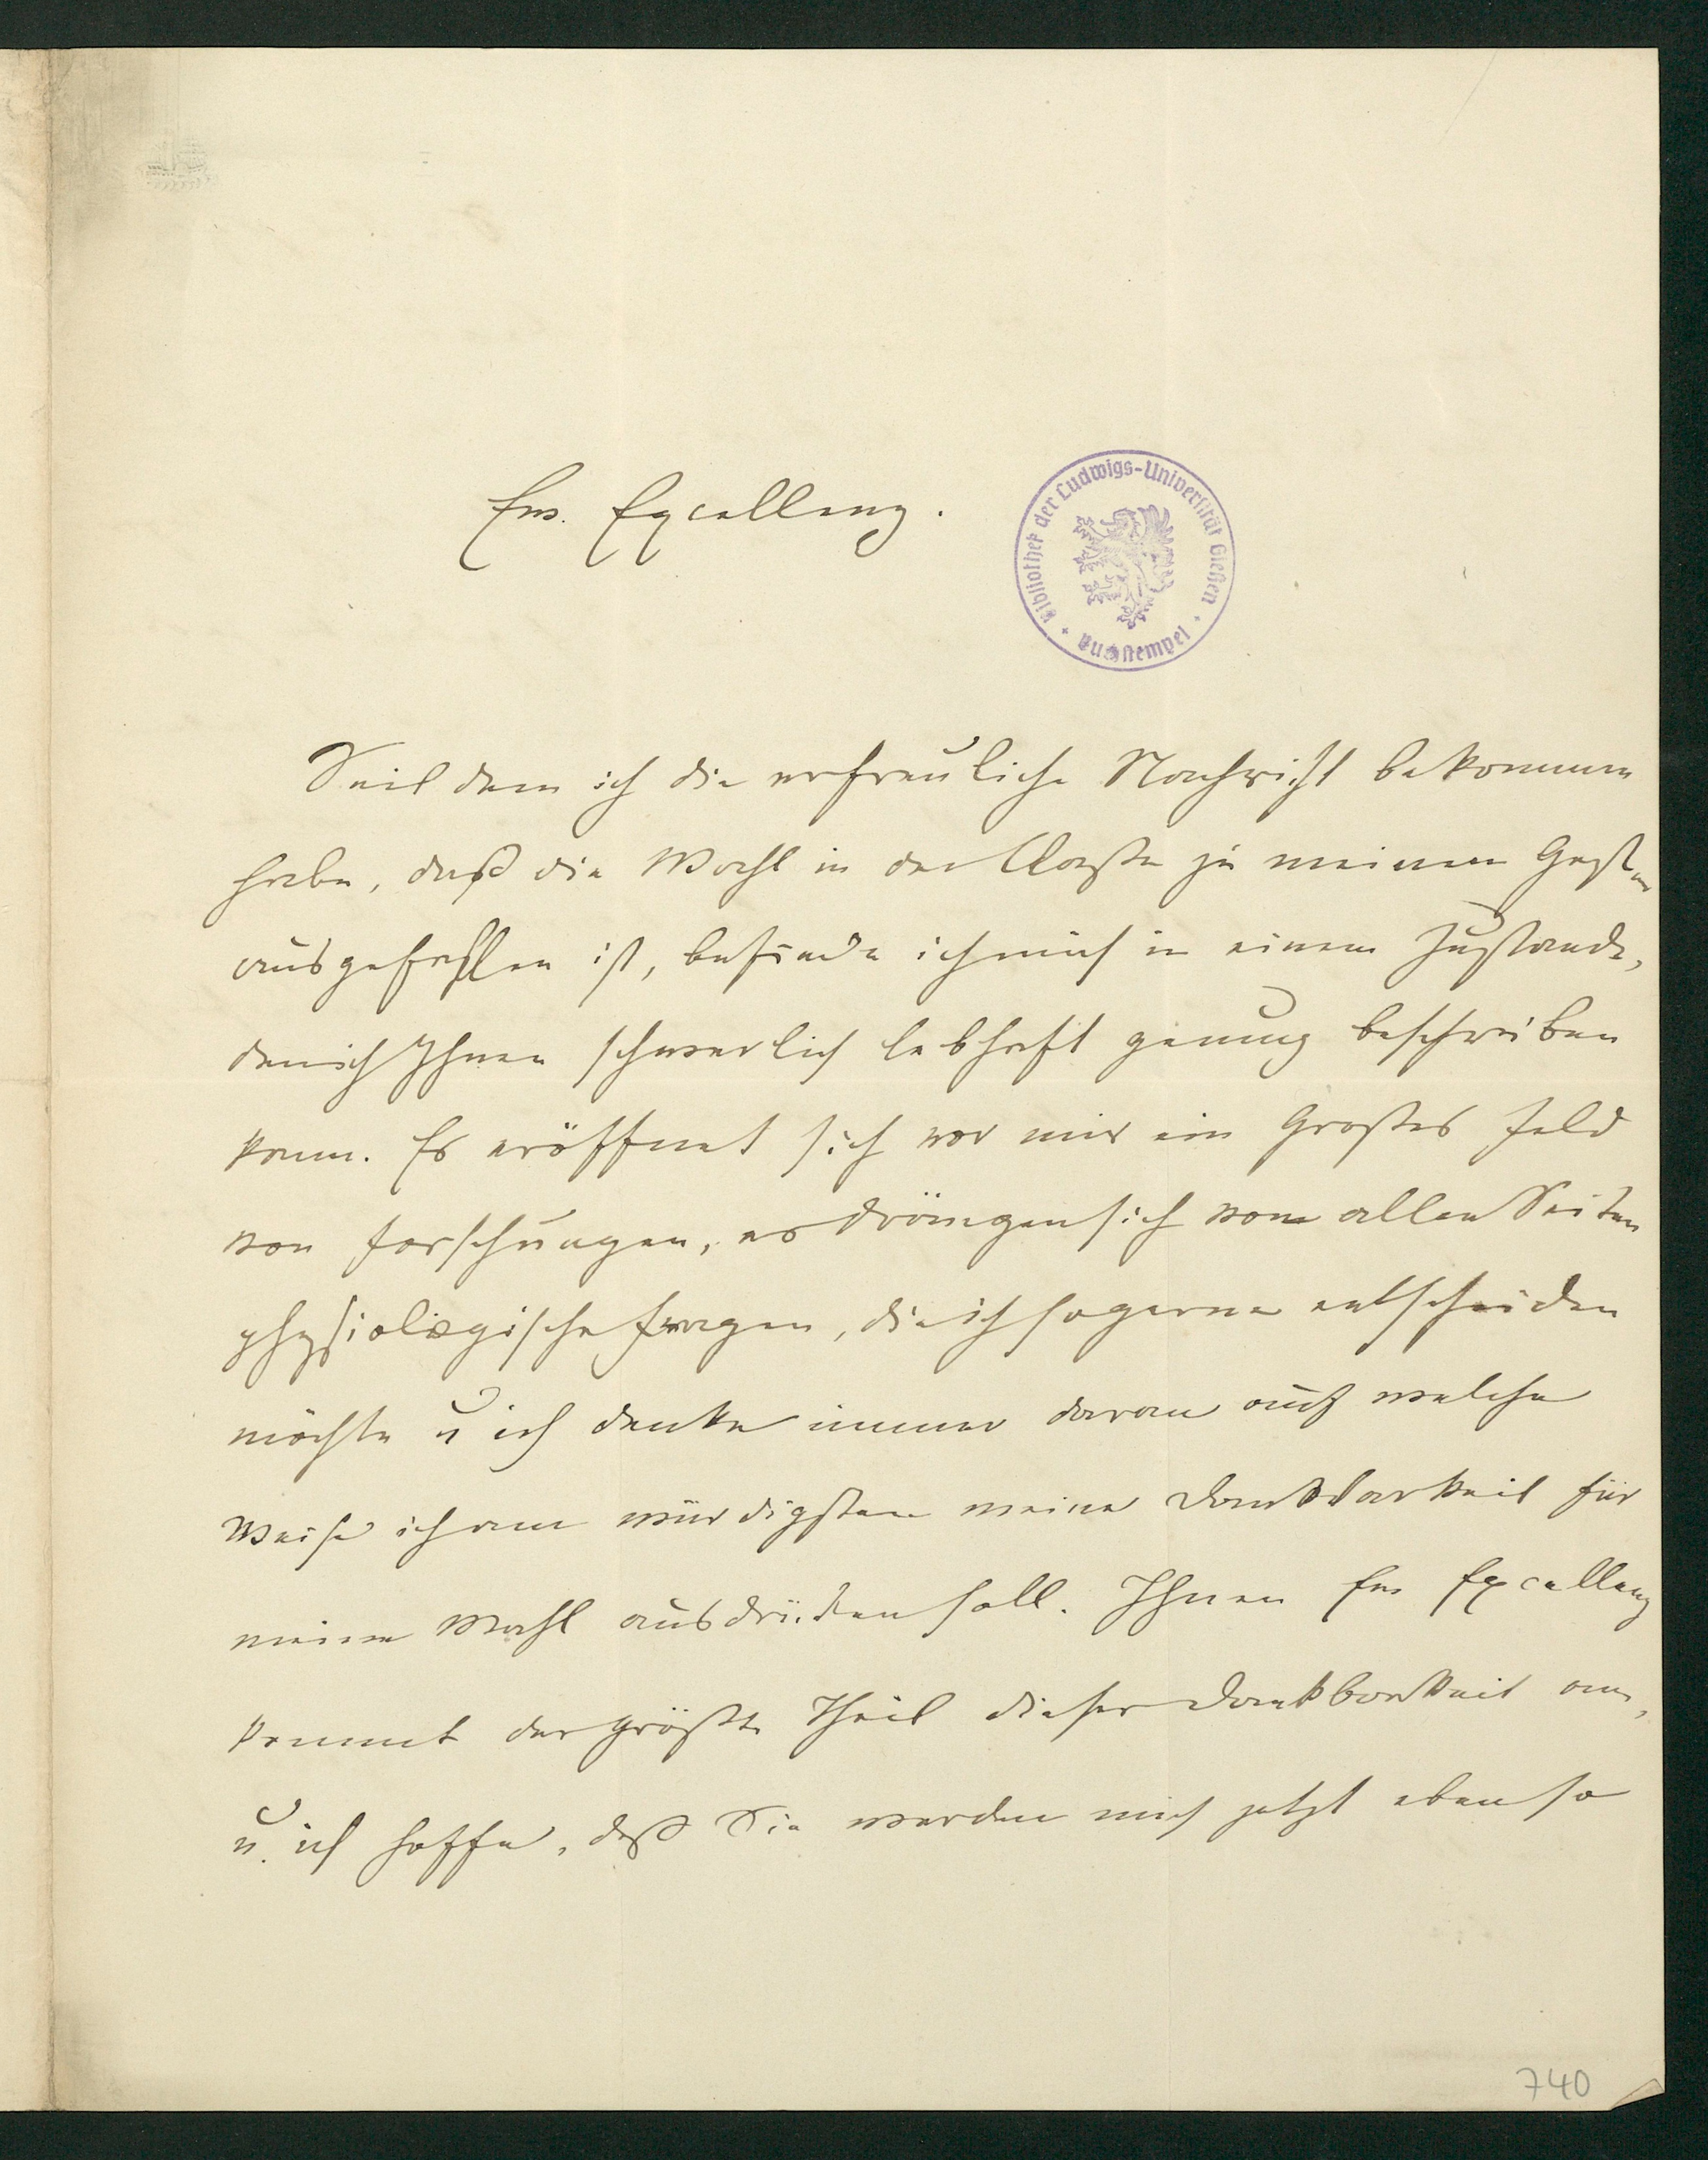 Ew. Excellenz.
Bibliothek der Ludwigs-Universität Gießen
Buchstempel
Seit dem ich die erfreuliche Nachricht bekommen
habe, daß die Wahl in der Classe zu meinen
ausgefallen ist, befinde ich mich in einem Zustande,
den ich Ihnen schwerlich lebhaft genug beschreiben
kann. Es eröffnet sich vor mir ein Großes Feld
von Forschungen, es drängen sich von allen Seiten
physiologische Fragen, die ich so gerne entscheiden
möchte u ich denke immer daran auf welche
Weise ich am würdigsten meine Dankbarkeit für
meine Wahl ausdrücken soll. Ihnen Ew Excellenz
kommt der größte Theil dieser Dankbarkeit an,
u. ich hoffe, daß Sie werden mich jetzt eben so
740